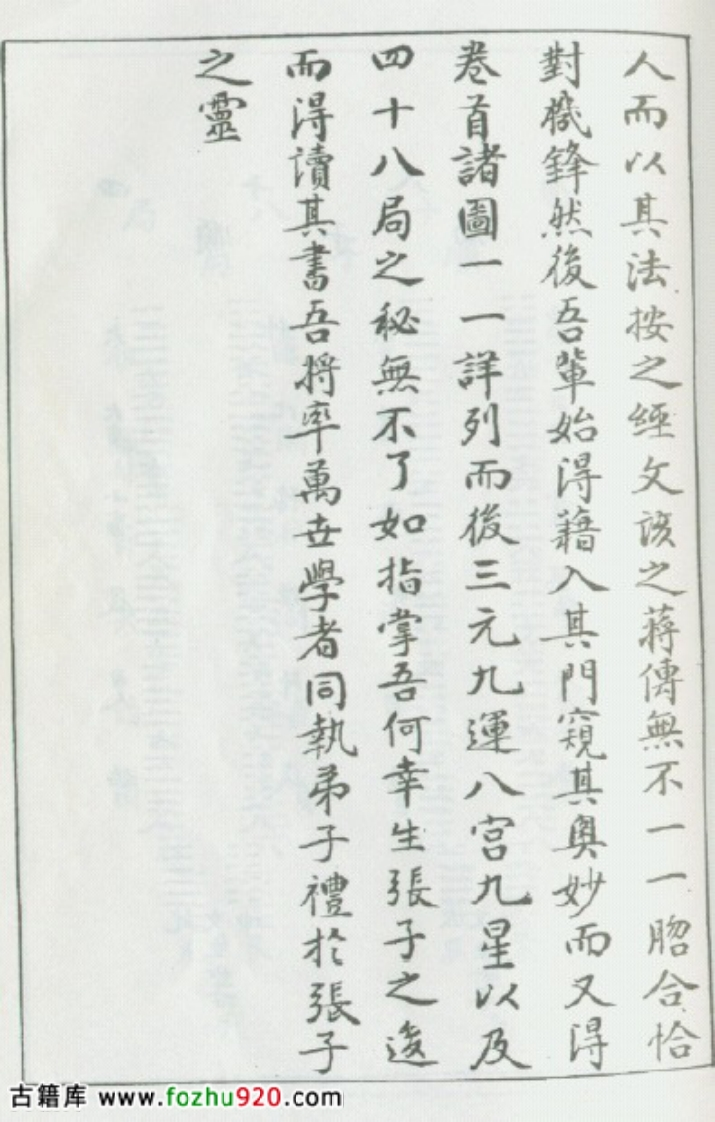 人而以其法按之經文該之蔣傳無不一一脗合恰
對機鋒然後吾輩始得藉入其門窺其奥妙而又得
卷首諸圖一一詳列而後三元九運八宫九星以及
四十八局之秘無不了如指掌吾何幸生張子之後
而得讀其書吾將率萬世學者同執弟子禮於張子
之靈
古籍库 www.fozhu920.com